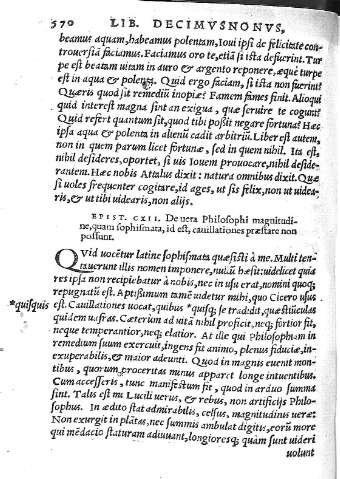 570 LIB. DECIMVSNONVS,
beamus aquam, habeamus polentam, Ioui ipsi de felicitate con-
trouersiā faciamus. Faciamus oro te, etiā si ista defuerint. Tur
pe est beatam uitam in auro & argento reponere, æquè turpe
est in aqua & polenta. Quid ergo faciam, si ista non fuerint?
Quæris quod sit remediū inopiæ? Famem fames finit. Alioqui
quid interest magna sint an exigua, quæ seruire te cogunt?
Quid refert quantum sit, quod tibi possit negare fortuna? Hæc
ipsa aqua & polenta in alienū cadit arbitriū. Liber est autem,
non in quem parum licet fortunæ, sed in quem nihil. Ita est,
nihil desideres, oportet, si uis Iouem prouocare, nihil deside-
rantem. Hæc nobis Attalus dixit: natura omnibus dixit. Quæ
si uoles frequenter cogitare, id ages, ut sis felix, non ut uidea-
ris, & ut tibi uidearis, non alijs.
EPIST. CXII. De uera Philosophi magnitudi-
ne, quam sophismata, id est, cauillationes præstare non
possunt.
QVid uocētur latinè sophismata quæsisti à me. Multi ten-
tauerunt illis nomen imponere, nullū hæsit: uidelicet quia
res ipsa non recipiebatur à nobis, nec in usu erat, nomini quoq;
repugnatū est. Aptissimum tamē uidetur mihi, quo Cicero usus
*quisquis est. Cauillationes uocat, quibus *quisq; se tradidit, quæstiūculas
quidem uafras. Cæterùm ad uitā nihil proficit, neq; fortior fit,
neque temperantior, neq; elatior. At ille qui Philosophiam in
remedium suum exercuit, ingens fit animo, plenus fiduciæ, in-
exuperabilis, & maior adeunti. Quod in magnis euenit mon-
tibus, quorum proceritas minus apparet longè intuentibus.
Cum accesseris, tunc manifestum fit, quod in arduo summa
sint. Talis est mi Lucili uerus, & rebus, non artificijs Philo-
sophus. In ædito stat admirabilis, celsus, magnitudinis ueræ:
Non exurgit in plātas, nec summis ambulat digitis, eorū more
qui mēdacio staturam adiuuant, longioresq; quàm sunt uideri
uolunt